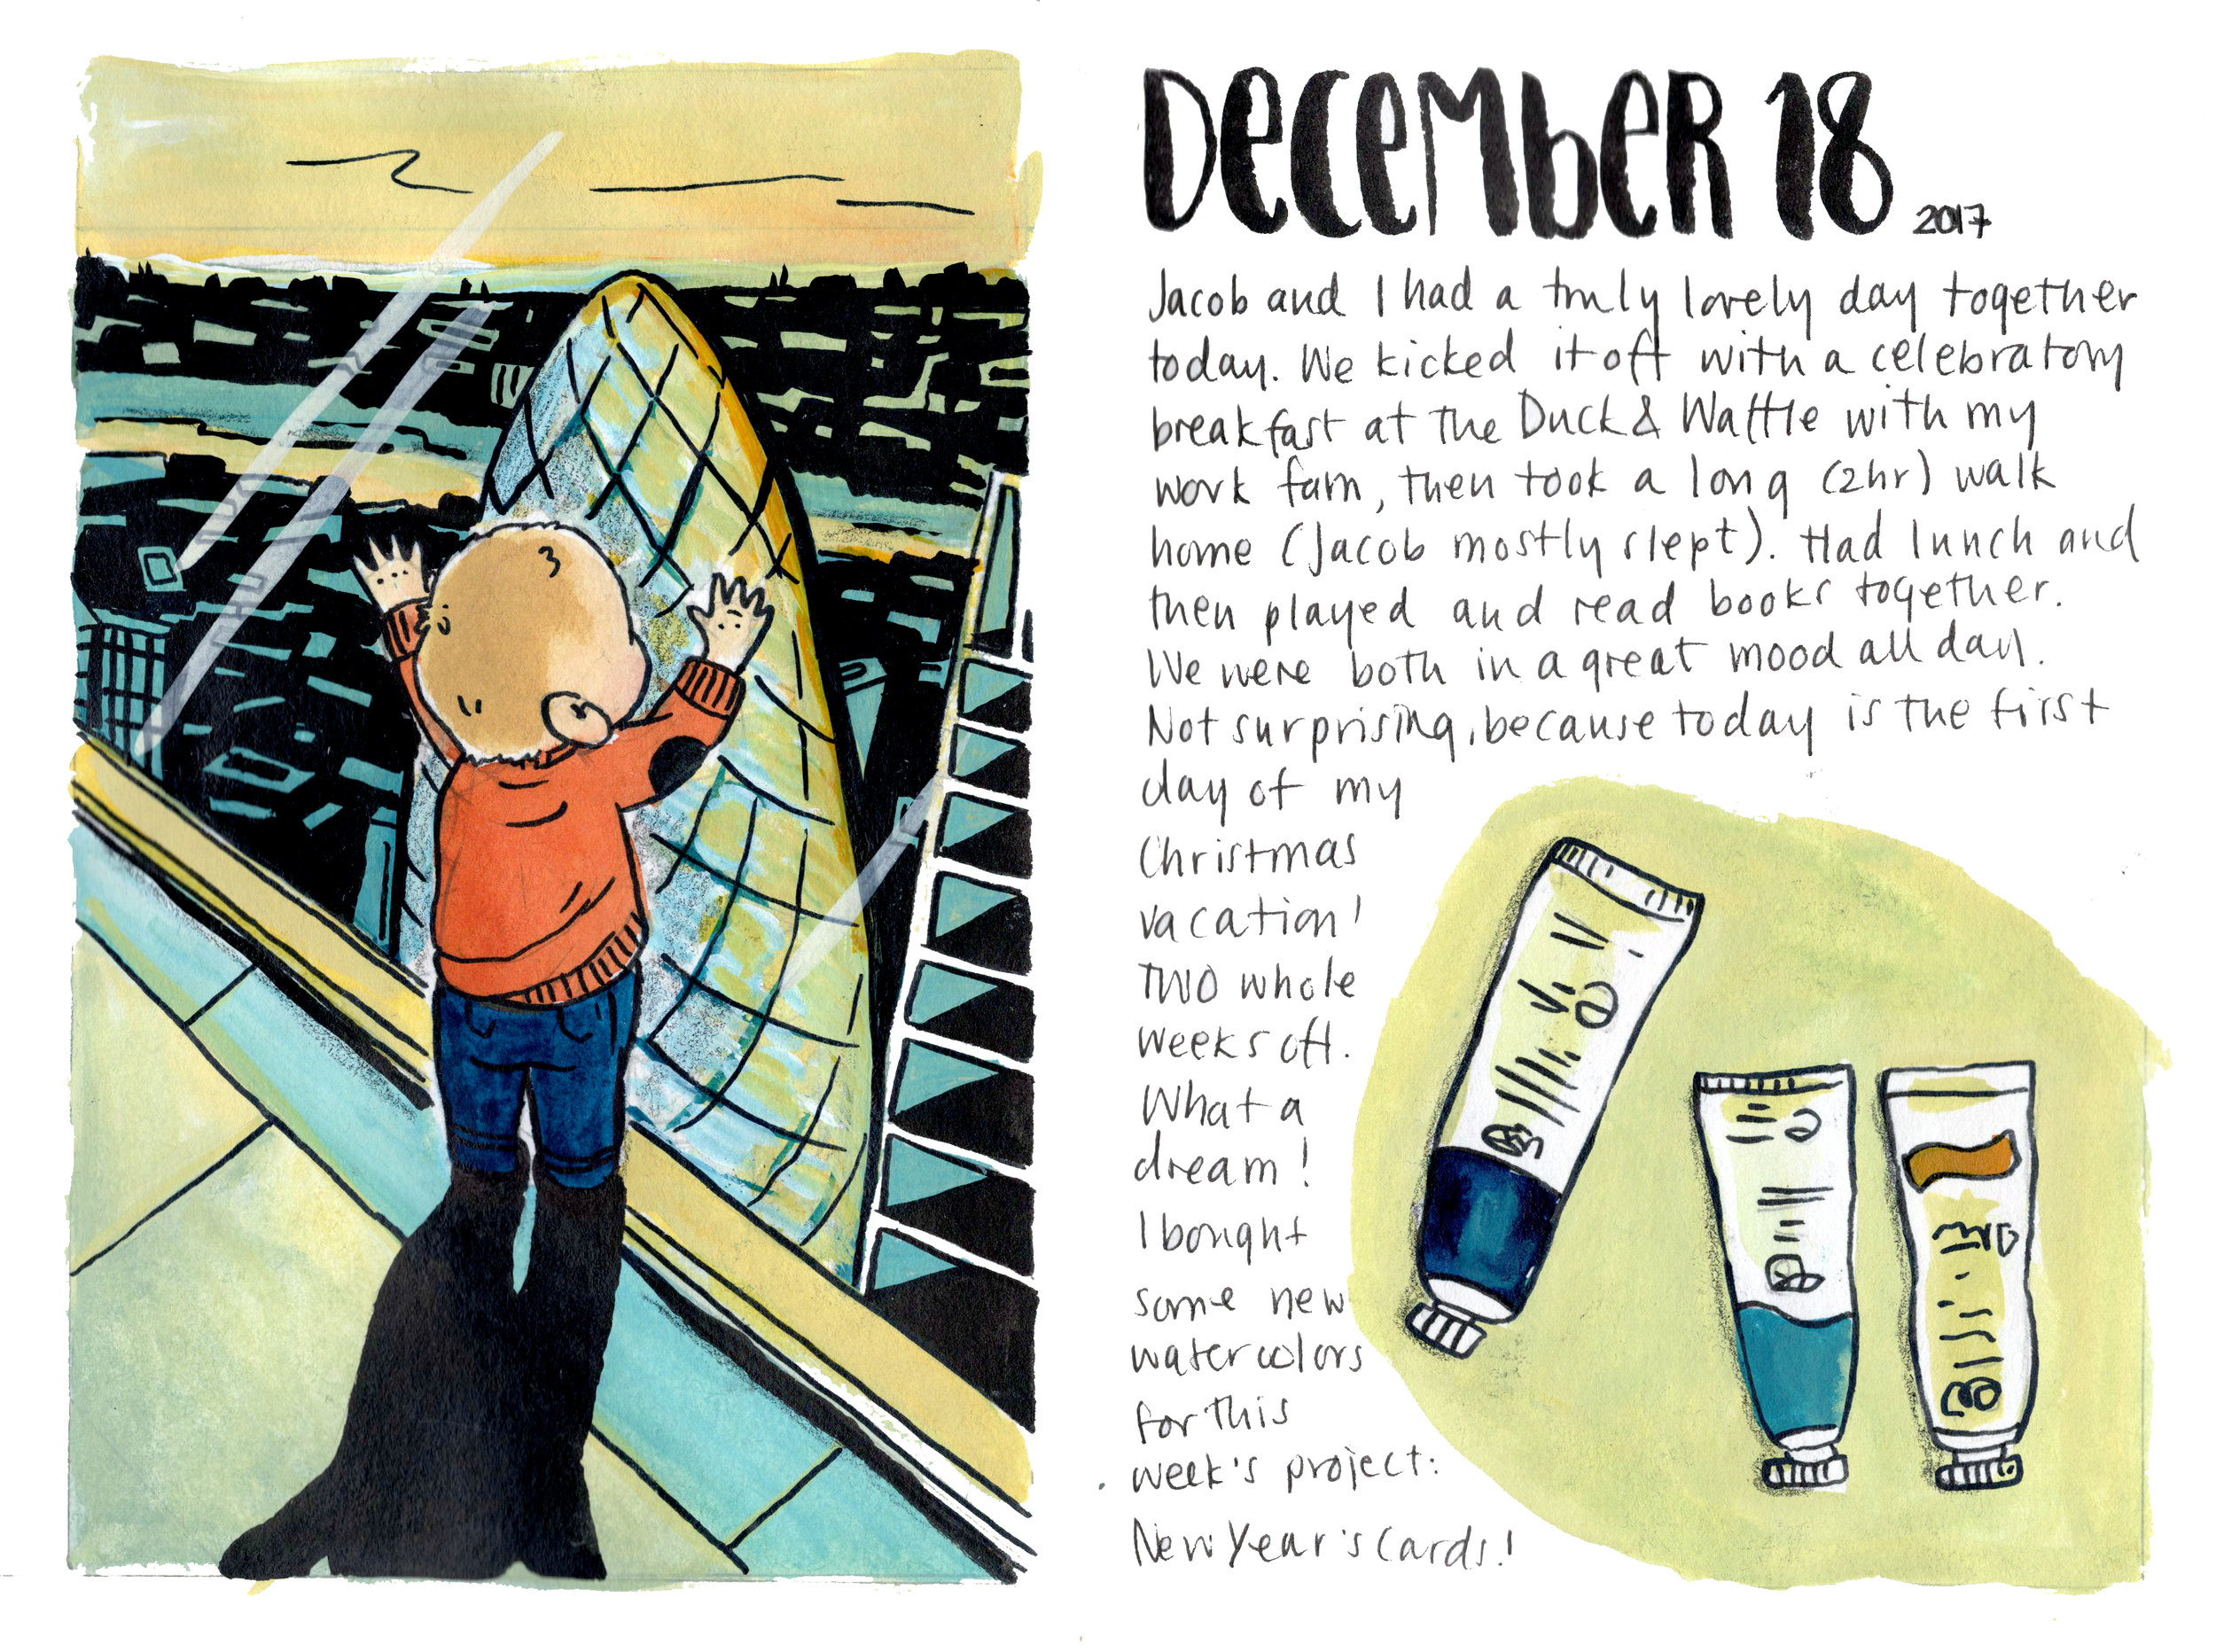 DECEMBER 18
2017
Jacob and I had a truly lovely day together
today. We kicked it off with a celebratory
breakfast at the Duck & Waffle with my
work fam, then took a long (2hr) walk
home (Jacob mostly slept). Had lunch and
then played and read books together.
We were both in a great mood all day.
Not surprising, because today is the first
day of my
Christmas
vacation!
TWO whole
weeks off.
What a
dream!
I bought
some new
watercolors
for this
week's project:
New Year's Cards!